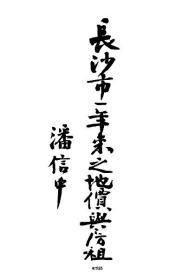 長沙市一年來之地價與房租
潘信中